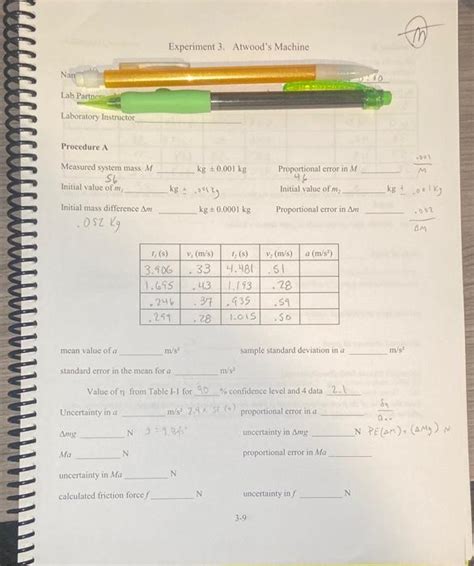 Experiment 3. Atwood's Machine
Nam
Lab Partne
Laboratory Instructor
Procedure A
Measured system mass M ____ kg ± 0.001 kg Proportional error in M ____ .001/M
Initial value of m₁ 56 kg ± .001kg Initial value of m₂ 46 kg ± .001kg
Initial mass difference Δm ____ kg ± 0.0001 kg Proportional error in Δm ____ /ΔM
.052 kg
t₁ (s) v₁ (m/s) t₂ (s) v₂ (m/s) a (m/s²)
3.906 .33 4.481 .51
1.695 .43 1.193 .28
.246 .37 .935 .59
.299 .28 1.015 .50
mean value of a ____ m/s² sample standard deviation in a ____ m/s²
standard error in the mean for a ____ m/s²
Value of η from Table I-1 for 90 % confidence level and 4 data 2.1
Uncertainty in a ____ m/s² proportional error in a ____
Δmg ____ N uncertainty in Δmg ____ N PE(Δm) × (ΔMg) N
Ma ____ N proportional error in Ma ____
uncertainty in Ma ____ N
calculated friction force f ____ N uncertainty in f ____ N
3-9